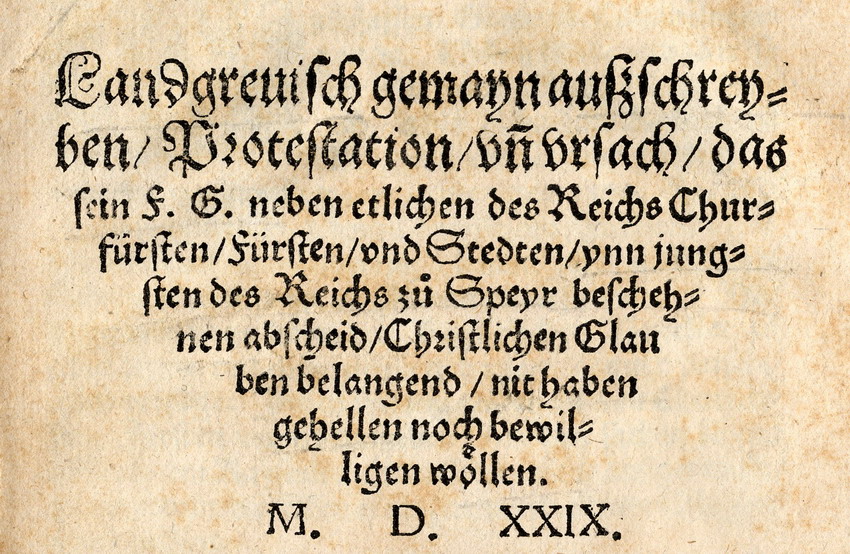 Landgreuisch gemayn außschrey⸗
ben/ Protestation/vñ vrsach/ das
sein F. G. neben etlichen des Reichs Chur⸗
fürsten/Fürsten/vnd Stedten/ynn jung⸗
sten des Reichs zů Speyr bescheh⸗
nen abscheid/Christlichen Glau
ben belangend / nit haben
gehellen noch bewil⸗
ligen woͤllen.
M. D. XXIX.